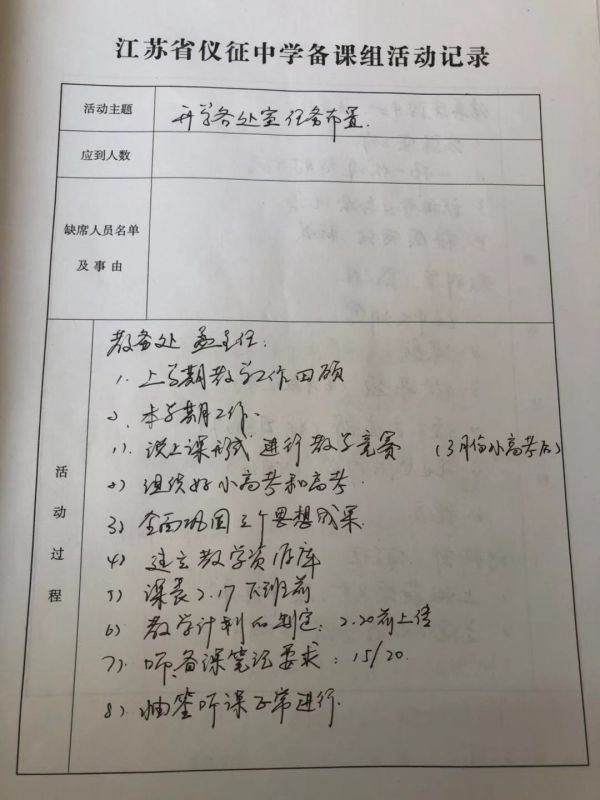 江苏省仪征中学备课组活动记录
活动主题
开学各处室任务布置.
应到人数
缺席人员名单
及事由
活动过程
教务处 孟主任:
1. 上学期教学工作回顾
2. 本学期工作.
1). 说上课形式 进行教学竞赛 (3月份小高考后)
2) 组织好小高考和高考.
3) 全面巩固三个思想成果.
4) 建立教学资源库
5) 课表2.17下班前
6) 教学计划的制定: 2.20前上传
7). 听、备课笔记要求: 15/20.
8). 抽签听课正常进行.